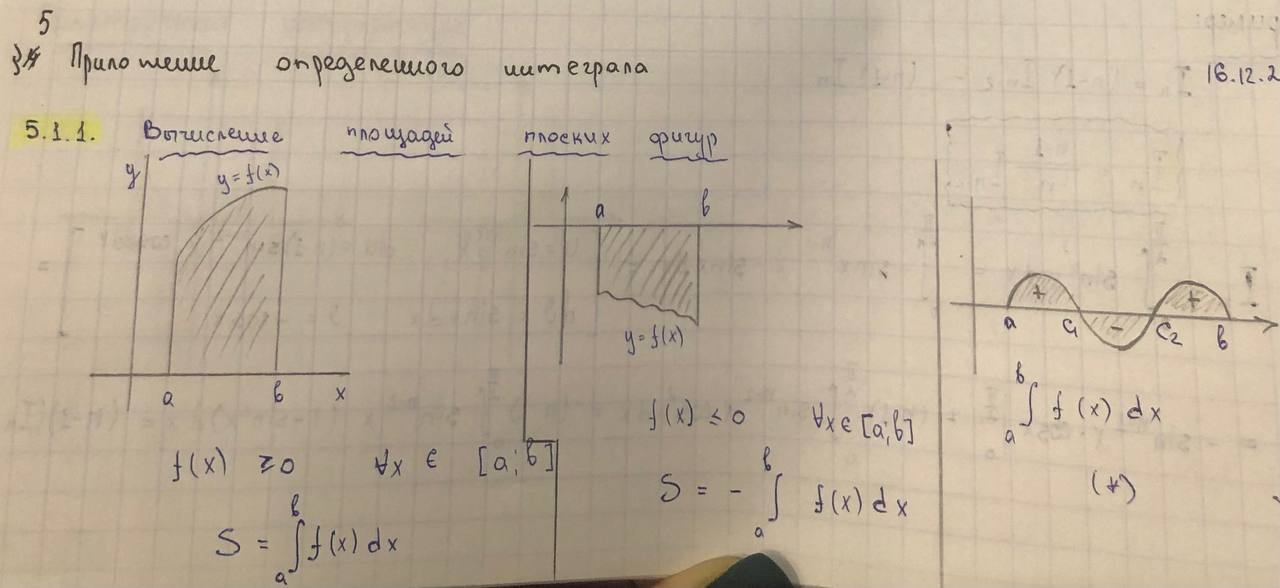 5
§4 Приложение определенного интеграла
16.12.2
5.1.1. Вычисление площадей плоских фигур
y
y = f(x)
a
b
x
f(x) ≥ 0 ∀x ∈ [a; b]
S = ∫ₐᵇ f(x) dx
a
b
y = f(x)
f(x) ≤ 0 ∀x ∈ [a; b]
S = - ∫ₐᵇ f(x) dx
+ - +
a C₁ C₂ b
∫ₐᵇ f(x) dx
(*)